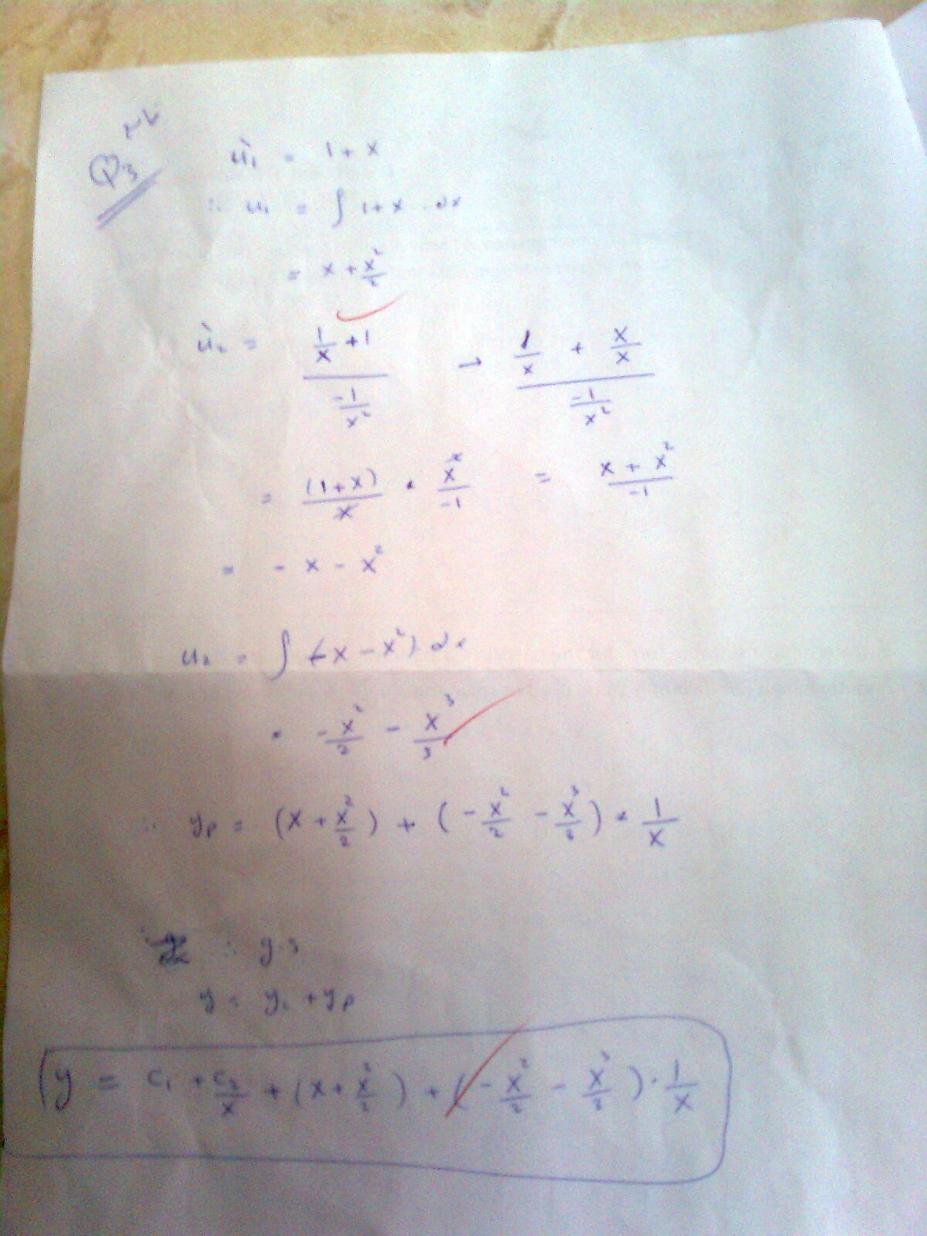 Q3
u₁' = 1 + x
∴ u₁ = ∫ 1 + x . dx
= x + x²/2
u₂' = (1/x + 1)/(-1/x²) → (1/x + x/x)/(-1/x²)
= (1+x)/x * x²/-1 = (x + x²)/-1
= - x - x²
u₂ = ∫ (-x - x²) . dx
= -x²/2 - x³/3
∴ yp = (x + x²/2) + (-x²/2 - x³/3) * 1/x
∴ y.s
y = yc + yp
y = c₁ + c₂/x + (x + x²/2) + (-x²/2 - x³/3) . 1/x